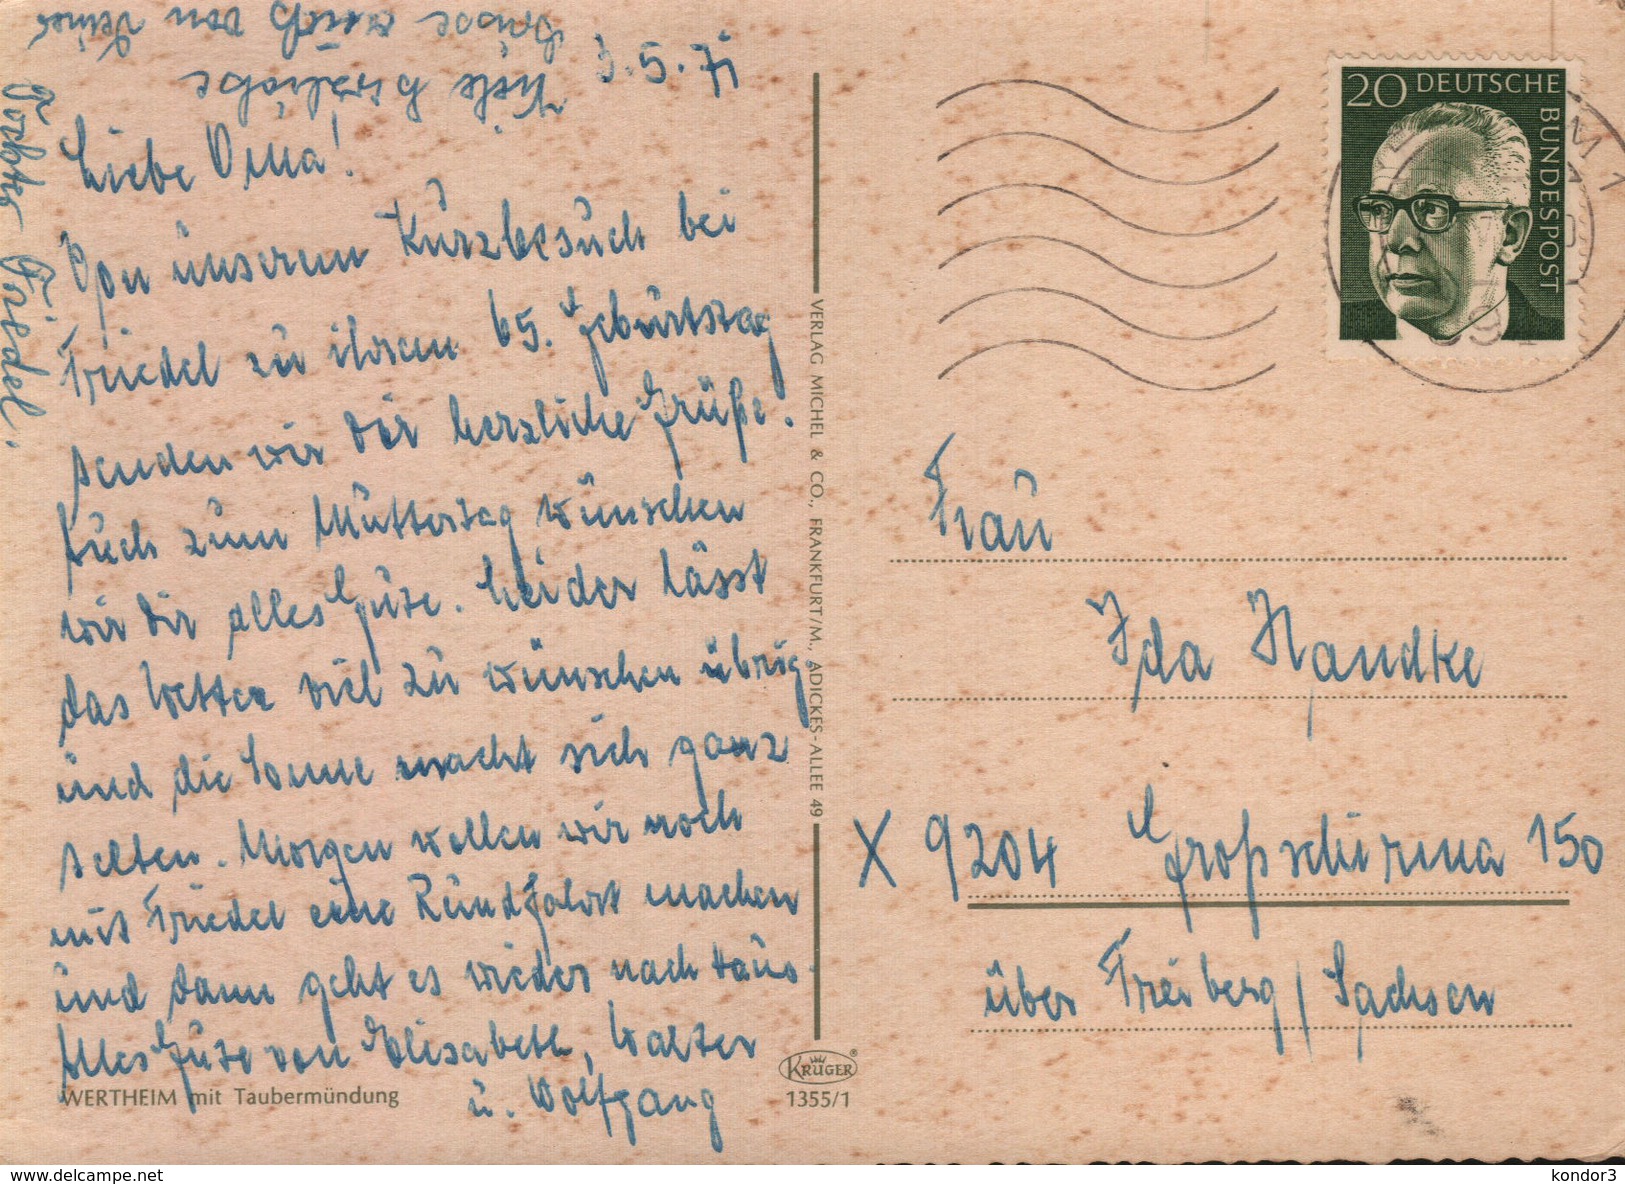 3.5.71
Liebe Oma!
Von unserem Kurzbesuch bei
Friedel zu ihrem 65. Geburtstag
senden wir Dir herzliche Grüße.
Auch zum Muttertag wünschen
wir Dir alles Gute. Leider lässt
das Wetter viel zu wünschen übrig
und die Sonne macht sich ganz
selten. Morgen wollen wir noch
mit Friedel eine Rundfahrt machen
und dann geht es wieder nach Haus.
Alles Gute von Elisabeth, Walter
u. Wolfgang
Viele herzliche
Grüsse auch von Deiner
Tochter Friedel.
WERTHEIM mit Taubermündung
VERLAG MICHEL & CO., FRANKFURT/M., ADICKES-ALLEE 49
KRÜGER
1355/1
20 DEUTSCHE
BUNDESPOST
Frau
Ida Handke
X 9204 Großschirma 150
über Freiberg/Sachsen
www.delcampe.net
kondor3